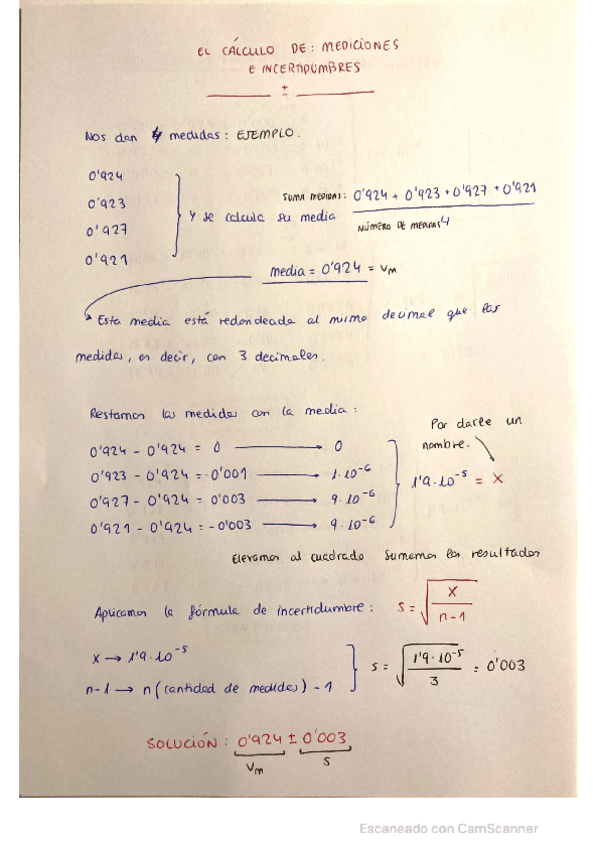 EL CÁLCULO DE: MEDICIONES
E INCERTIDUMBRES
±
Nos dan 4 medidas: EJEMPLO.
0'924
0'923
0'927
0'921
Y se calcula su media
SUMA MEDIDAS: 0'924 + 0'923 + 0'927 + 0'921
NÚMERO DE MEDIDAS 4
media = 0'924 = Vm
Esta media está redondeada al mismo decimal que las
medidas, es decir, con 3 decimales.
Restamos las medidas con la media:
Por darle un
nombre.
0'924 - 0'924 = 0 → 0
0'923 - 0'924 = -0'001 → 1·10⁻⁶
0'927 - 0'924 = 0'003 → 9·10⁻⁶
0'921 - 0'924 = -0'003 → 9·10⁻⁶
1'9·10⁻⁵ = X
Elevamos al cuadrado Sumamos los resultados
Aplicamos la fórmula de incertidumbre: S = √(X / n-1)
X → 1'9·10⁻⁵
n-1 → n (cantidad de medidas) - 1
S = √(1'9·10⁻⁵ / 3) = 0'003
SOLUCIÓN: 0'924 ± 0'003
Vm S
Escaneado con CamScanner